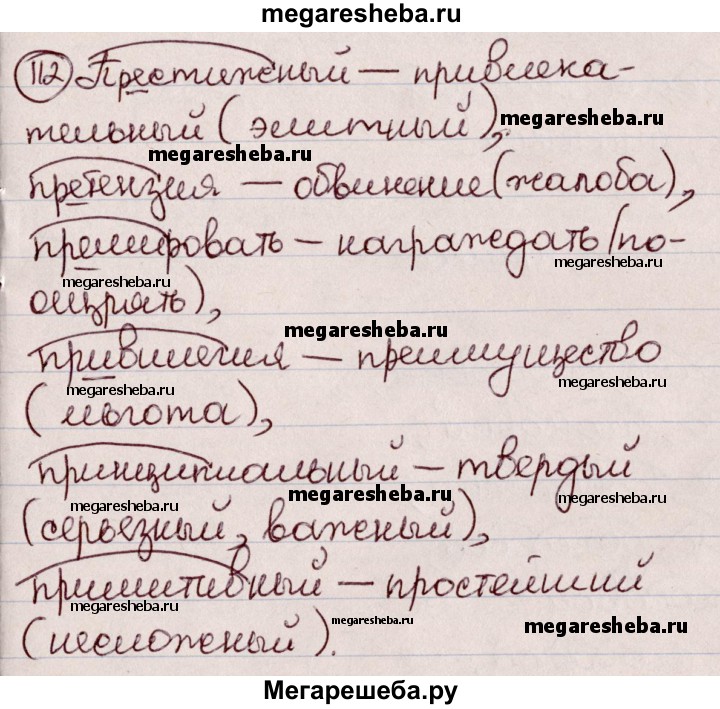 megaresheba.ru
112 Престижный — привлека-
тельный (элитный), megaresheba.ru
megaresheba.ru
претензия — обвинение (жалоба),
премировать — награждать (по-
megaresheba.ru megaresheba.ru
ощрять), megaresheba.ru
привилегия — преимущество
megaresheba.ru megaresheba.ru
(льгота),
принципиальный — твердый
megaresheba.ru megaresheba.ru megaresheba.ru
(серьезный, важный),
примитивный — простейший
megaresheba.ru megaresheba.ru megaresheba.ru
(несложный).
Мегарешеба.ру